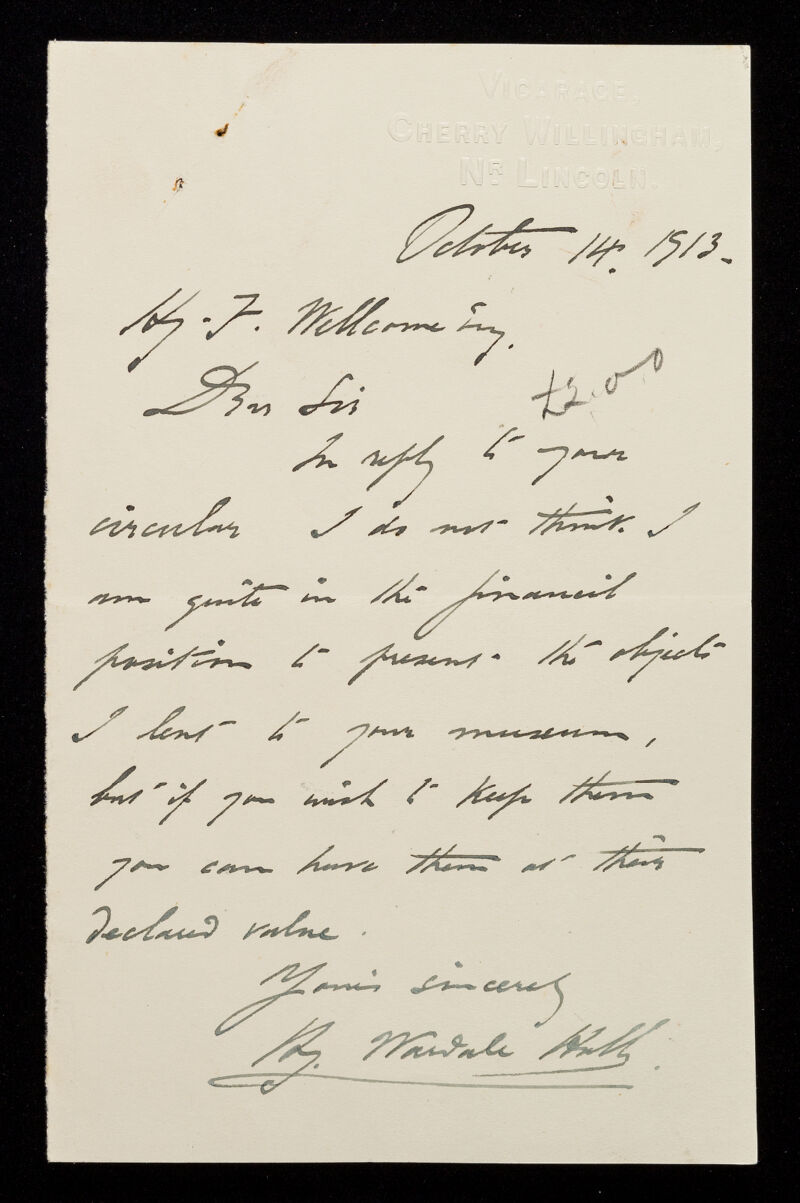 VICARAGE,
CHERRY WILLINGHAM,
NR LINCOLN.
October 14. 1913.
Hy. F. Wellcome Esq.
£2.0.0
Dear Sir
In reply to your
circular I do not think I
am quite in the financial
position to present the objects
I lent to your museum,
but if you wish to keep them
you can have them at their
declared value.
Yours sincerely
Hy. Wardale